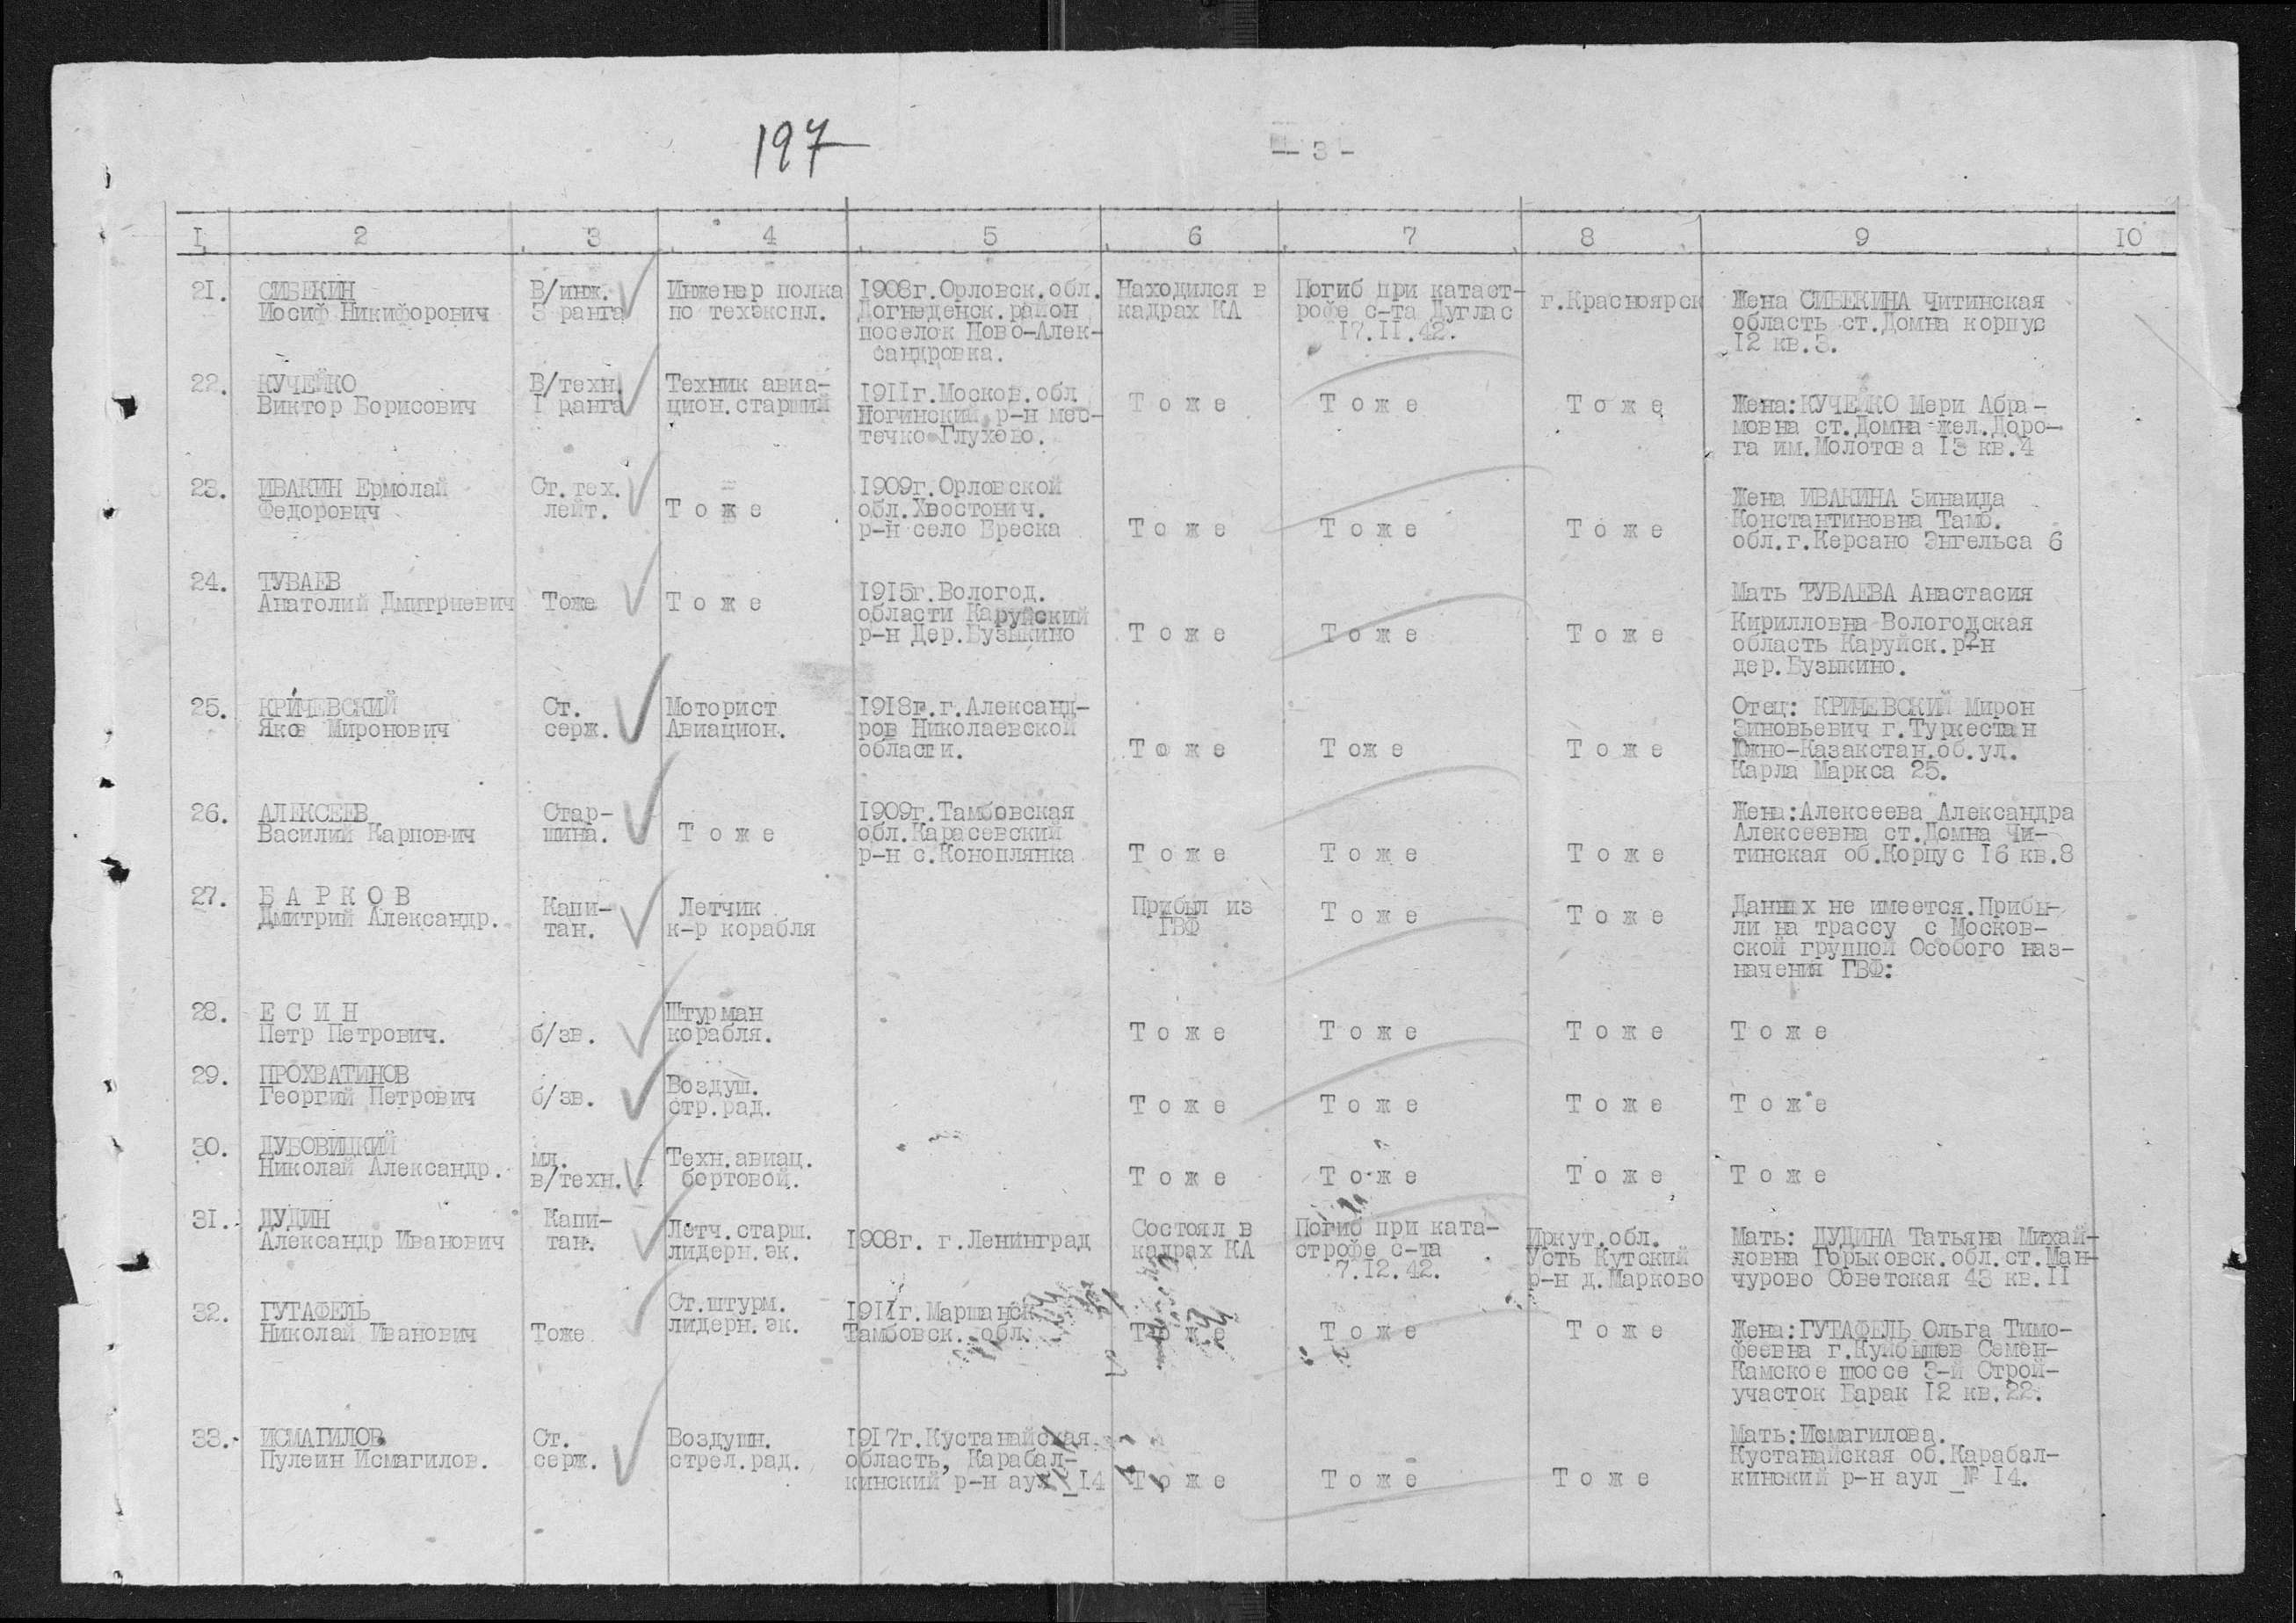 197
— 3 -
I 2 3 4 5 6 7 8 9 10
21. СИБЕКИН В/инж. Инженер полка 1908г.Орловск.обл. Находился в Погиб при катаст- г.Красноярск Жена СИБЕКИНА Читинская
Иосиф Никифорович 3 ранга по техэкспл. Догнеденск.район кадрах КА рофе с-та Дуглас область ст.Домна корпус
поселок Ново-Алек- 17.11.42. 12 кв.3.
сандровка.
22. КУЧЕЙКО В/техн. Техник авиа- 1911г.Москов.обл Тоже Тоже Тоже Жена:КУЧЕЙКО Мери Абра-
Виктор Борисович I ранга цион.старший Ногинский р-н мес- мовна ст.Домна жел.Доро-
течко Глухово. га им.Молотова 13 кв.4
23. ИВАКИН Ермолай Ст.тех. Тоже 1909г.Орловской Тоже Тоже Тоже Жена ИВАКИНА Зинаида
Федорович лейт. обл.Хвостович. Константиновна Тамб.
р-н село Ереска обл.г.Керсано Энгельса 6
24. ТУВАЕВ Тоже Тоже 1915г.Вологод. Тоже Тоже Тоже Мать ТУВАЕВА Анастасия
Анатолий Дмитриевич области Каруйский Кирилловна Вологодская
р-н Дер.Бузыкино область Каруйск.р-н
дер.Бузыкино.
25. КРИЧЕВСКИЙ Ст. Моторист 1918г.г.Александ- Тоже Тоже Тоже Отец: КРИЧЕВСКИЙ Мирон
Яков Миронович серж. Авиацион. ров Николаевской Зиновьевич г.Туркестан
области. Южно-Казакстан.об.ул.
Карла Маркса 25.
26. АЛЕКСЕЕВ Стар- Тоже 1909г.Тамбовская Тоже Тоже Тоже Жена:Алексеева Александра
Василий Карпович шина. обл.Карасевский Алексеевна ст.Домна Чи-
р-н с.Коноплянка тинская об.Корпус 16 кв.8
27. БАРКОВ Капи- Летчик Прибыл из Тоже Тоже Данных не имеется.Прибы-
Дмитрий Александр. тан. к-р корабля ГВФ ли на трассу с Москов-
ской группой Особого наз-
начения ГВФ:
28. ЕСИН б/зв. Штурман Тоже Тоже Тоже Тоже
Петр Петрович. корабля.
29. ПРОХВАТИНОВ б/зв. Воздуш. Тоже Тоже Тоже Тоже
Георгий Петрович стр.рад.
30. ДУБОВИЦКИЙ мл. Техн.авиац. Тоже Тоже Тоже Тоже
Николай Александр. в/техн. бортовой.
31. ДУДИН Капи- Летч.старш. 1908г. г.Ленинград Состоял в Погиб при ката- Иркут.обл. Мать: ДУДИНА Татьяна Михай-
Александр Иванович тан. лидерн.эк. кадрах КА строфе с-та Усть Кутский ловна Горьковск.обл.ст.Ман-
7.12.42. р-н д.Марково чурово Советская 43 кв.11
32. ГУТАФЕЛЬ Тоже Ст.штурм. 1911г.Маршанск Тоже Тоже Тоже Жена:ГУТАФЕЛЬ Ольга Тимо-
Николай Иванович лидерн.эк. Тамбовск. обл. феевна г.Куйбышев Семен-
Камское шоссе 3-й Строй-
участок Барак 12 кв.22.
33. ИСМАГИЛОВ Ст. Воздушн. 1917г.Кустанайская Тоже Тоже Тоже Мать:Исмагилова.
Пулеин Исмагилов. серж. стрел.рад. область, Карабал- Кустанайская об.Карабал-
кинский р-н аул 14 кинский р-н аул № 14.